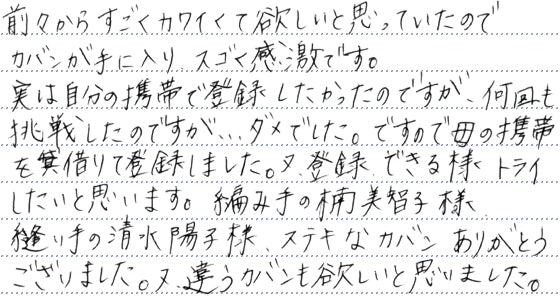 前々からすごくカワイくて欲しいと思っていたので
カバンが手に入り、スゴく感激です。
実は自分の携帯で登録したかったのですが、何回も
挑戦したのですが…ダメでした。ですので母の携帯
を借りて登録しました。又、登録できる様トライ
したいと思います。編み手の楠美智子様、
縫い手の清水陽子様、ステキなカバンありがとう
ございました。又、違うカバンも欲しいと思いました。